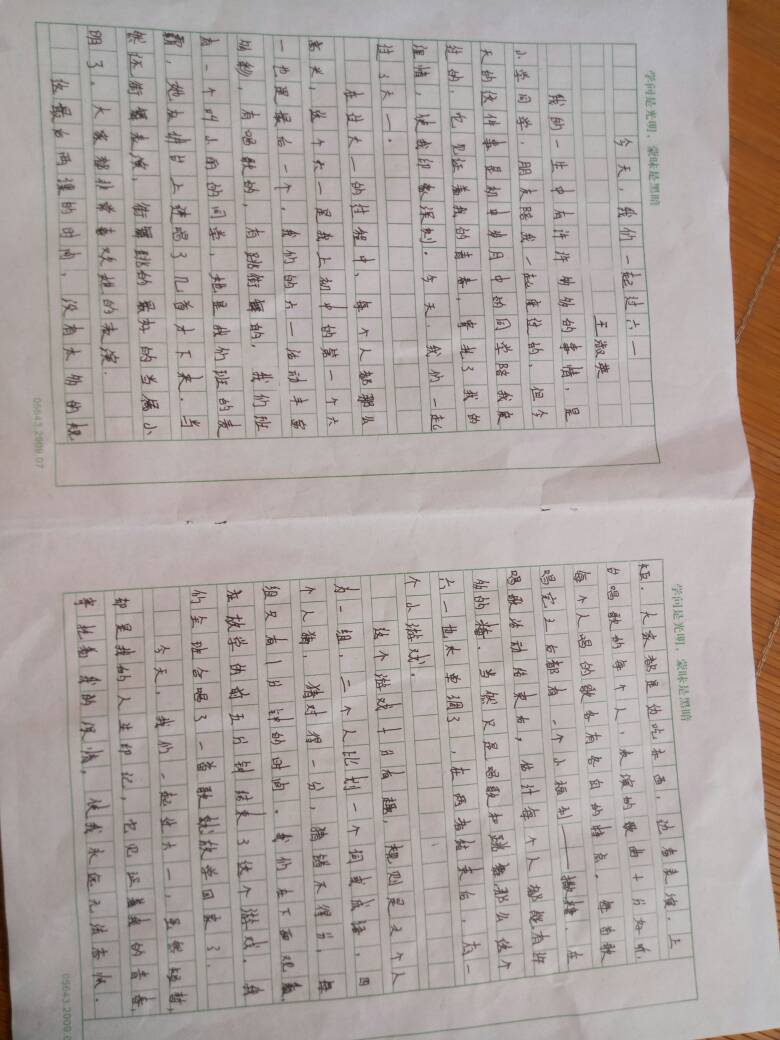 学问是光明，蒙昧是黑暗
今天，我们一起过六一
王淑英
我的一生中有许许多多的事情，是
小学同学，朋友陪我一起度过的，但今
天的这件事是初中岁月中的同学陪我度
过的，它见证着我的青春，寄托了我的
深情，使我印象深刻。今天，我们一起
过六一。
在过六一的过程中，每个人都那么
高兴，这个六一是我上初中的第一个六
一也是最后一个，我们的六一活动丰富
多彩，有唱歌的，有跳街舞的，我们班
有一个叫小雨的同学，她是我们班的麦
霸，她在讲台上连唱了几首才下来。当
然还有街舞表演，街舞跳的最好的当属小
明了，大家都非常喜欢他的表演。
这最后两组的时间，没有太多的规
05643.2009.07
学问是光明，蒙昧是黑暗
矩，大家都是边吃东西，边看表演，上
台唱歌的每个人，表演的歌曲十分好听，
每个人唱的歌各有各自的特点。每当歌
唱完之后都有一个小福利——撒糖，在
唱歌活动结束后，估计每个人都能有许
多的糖。当然只是唱歌和跳舞那么这个
六一也太单调了，在两者结束后，有一
个小游戏。
这个游戏十分有趣，规则是五个人
为一组，二个人比划一个词或成语，四
个人猜，猜对得一分，猜错不得分，每
组只有1分钟的时间。我们在下面观看，
在放学的前五分钟结束了这个游戏。我
们全班合唱了一首歌就放学回家了。
今天，我们一起过六一，虽然短暂，
却是我的人生印记，它见证着我的青春，
寄托着我的深情，使我永远无法忘怀。
05643.2009.0